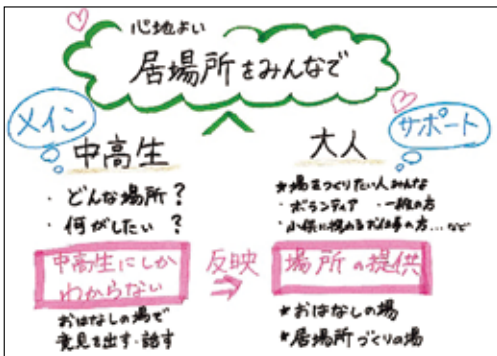 心地よい
居場所をみんなで
メイン
中高生
・どんな場所?
・何がしたい?
中高生にしか
わからない
おはなしの場で
意見を出す・話す
反映
サポート
大人
*場をつくりたい人みんな
・ボランティア ・一般の方
・小供に携わるお仕事の方…など
場所の提供
*おはなしの場
*居場所づくりの場